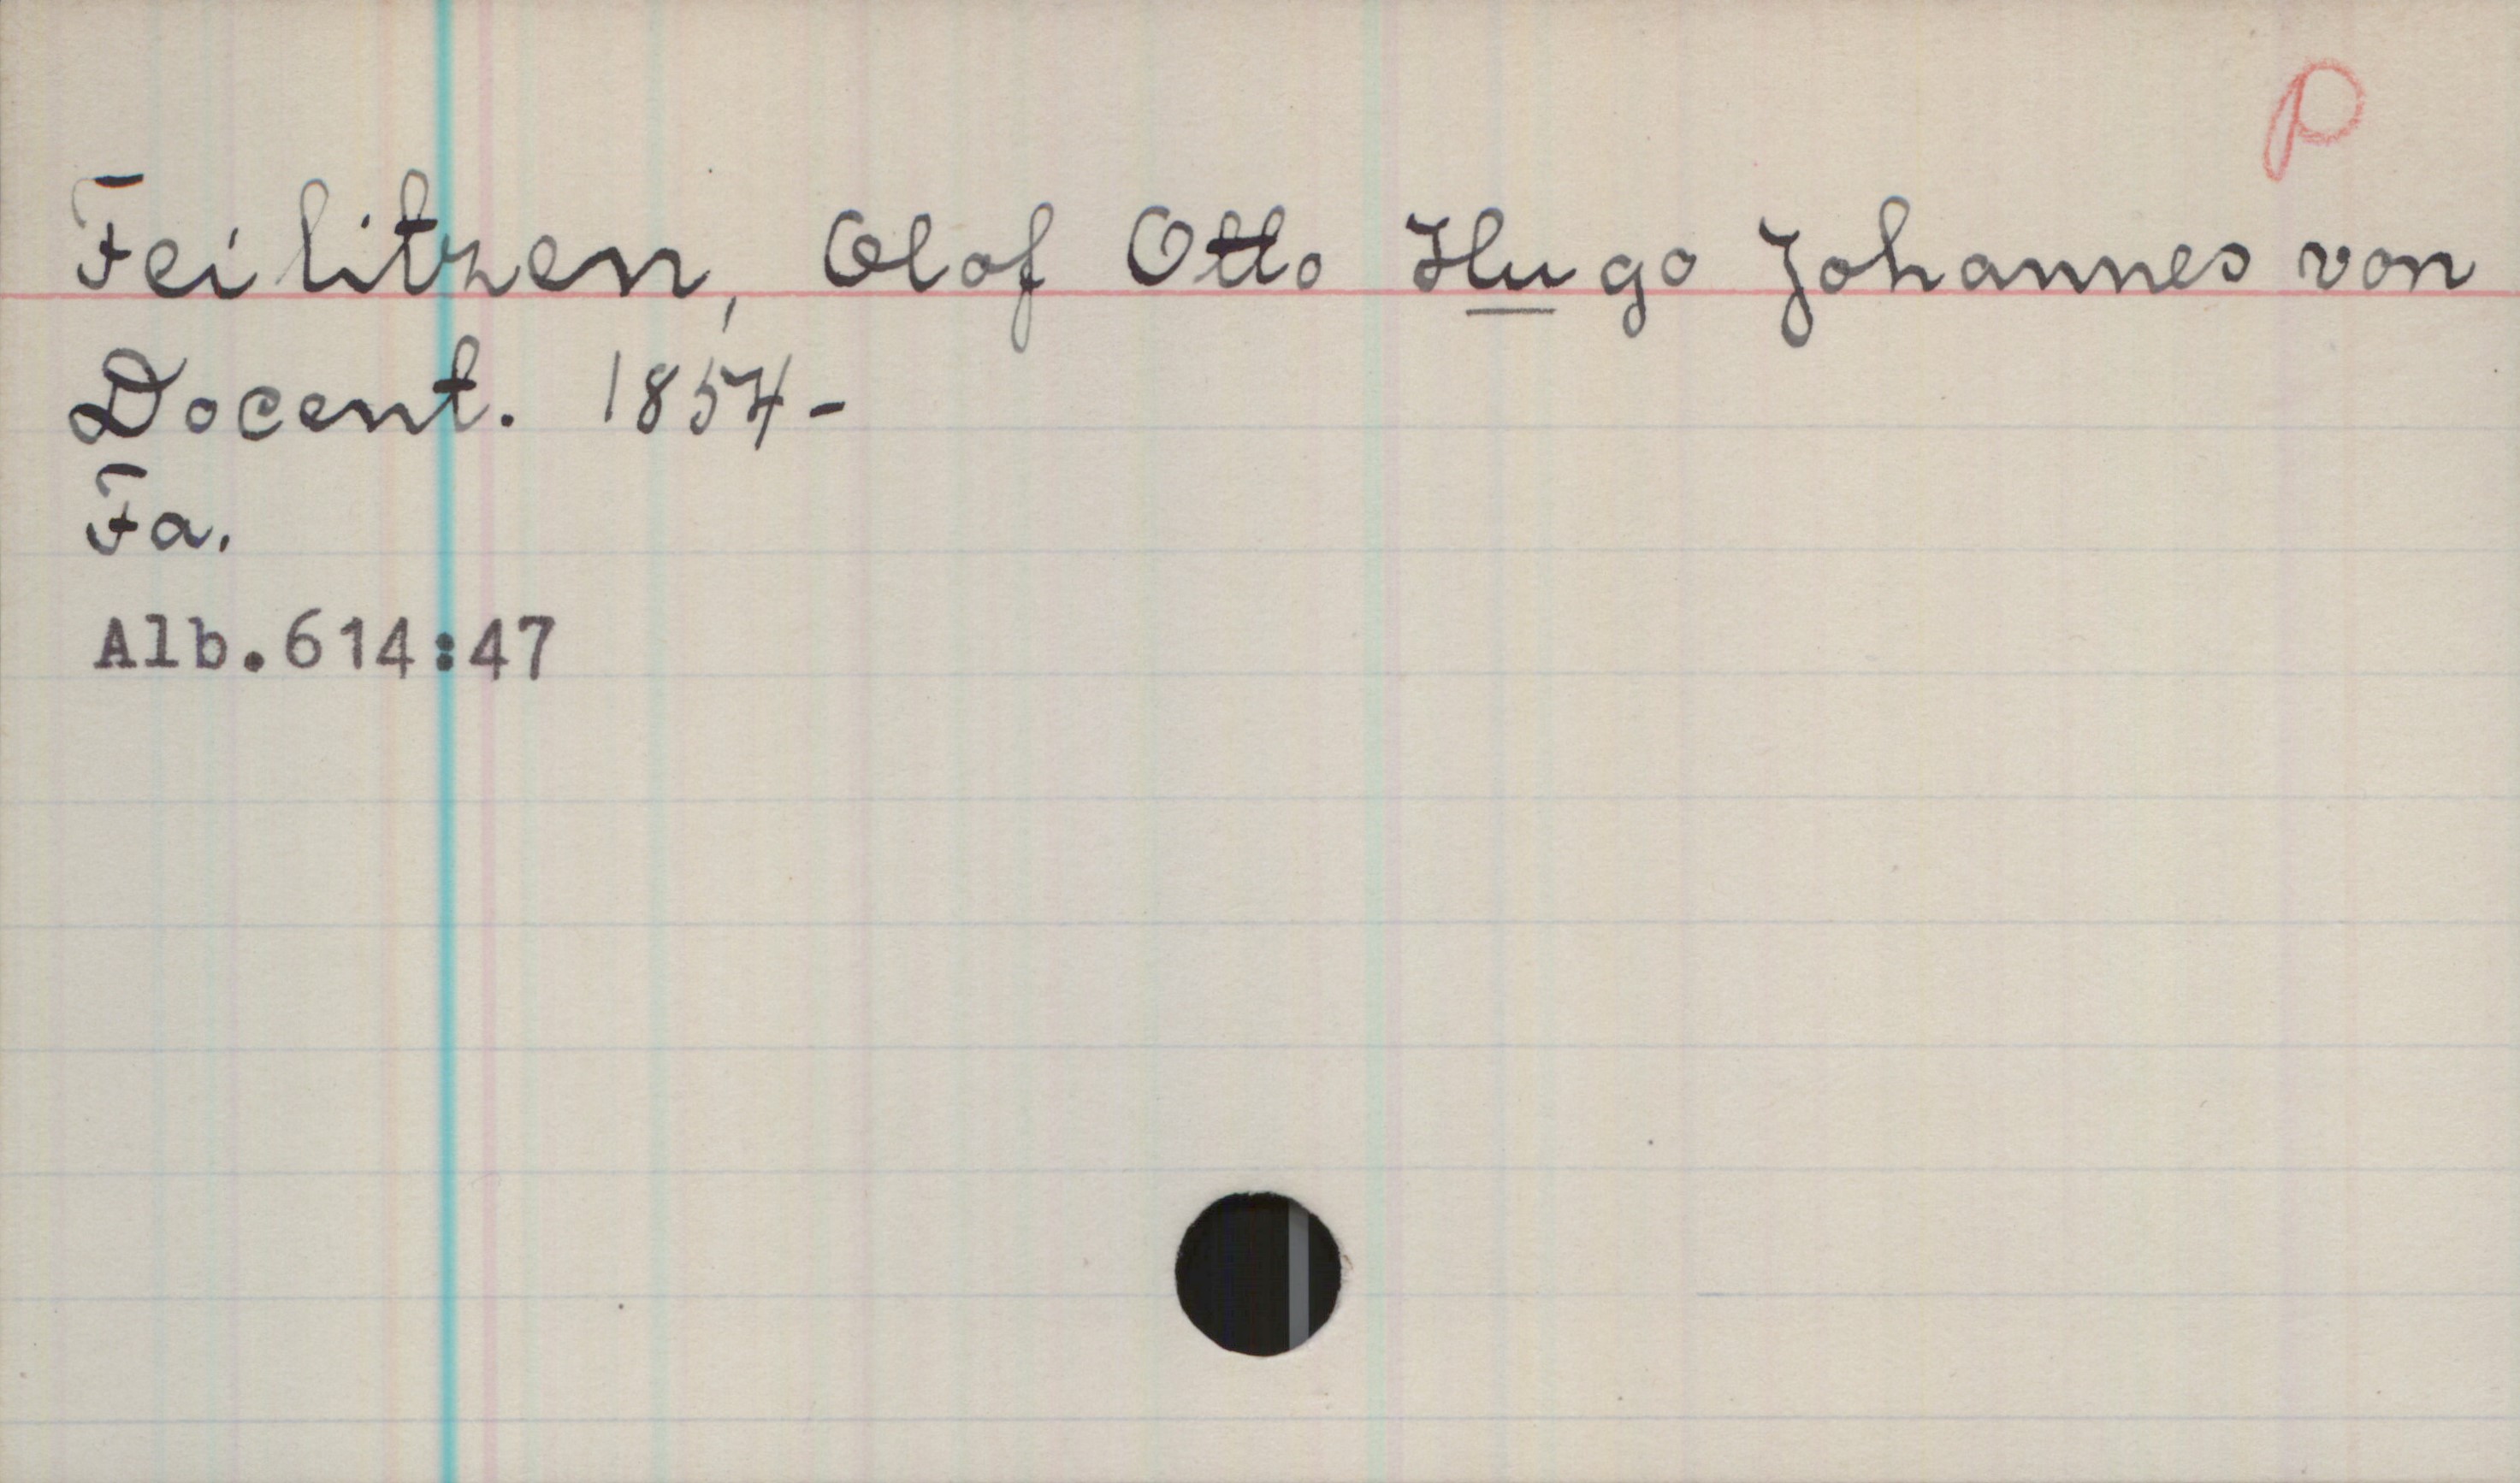 P
Feilitzen, Olof Otto Hugo Johannes von
Docent. 1854-
Fa.
Alb.614:47